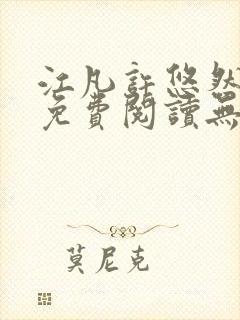 江凡許悠然
免費閱讀無
莫尼克